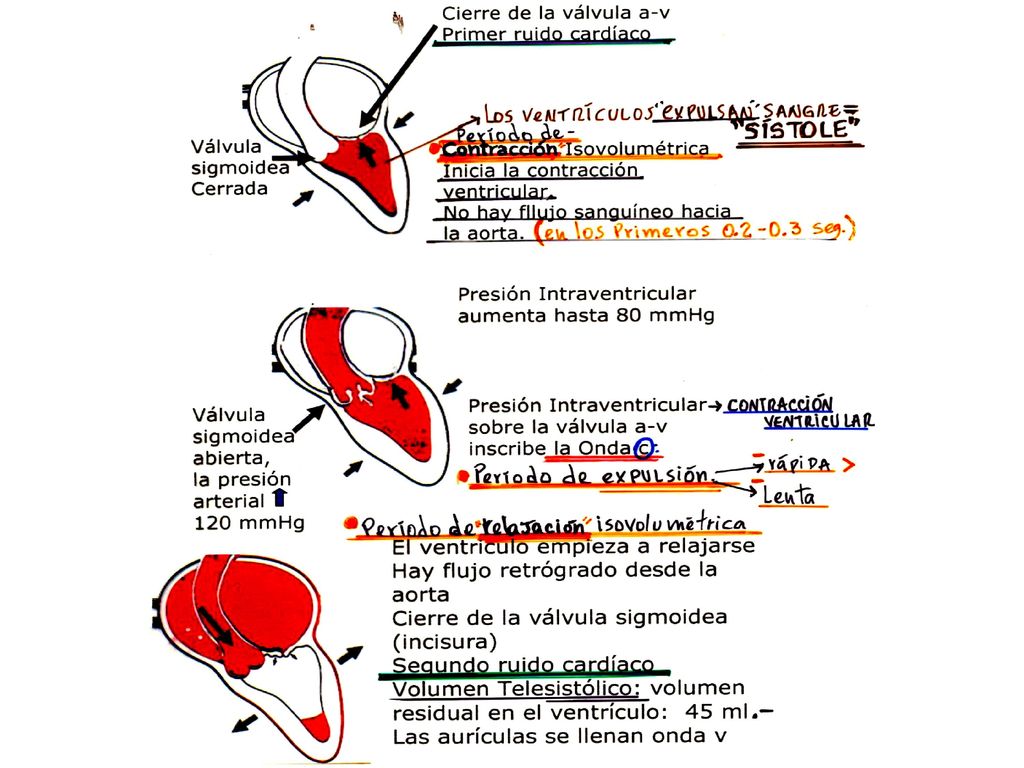 Cierre de la válvula a-v
Primer ruido cardíaco
Los ventrículos "expulsan" sangre=
"SÍSTOLE"
Período de-
Contracción Isovolumétrica
Inicia la contracción
ventricular.
No hay fllujo sanguíneo hacia
la aorta. (en los Primeros 0.2-0.3 seg.)
Válvula
sigmoidea
Cerrada
Presión Intraventricular
aumenta hasta 80 mmHg
Válvula
sigmoidea
abierta,
la presión
arterial
120 mmHg
Presión Intraventricular → CONTRACCIÓN
VENTRICULAR
sobre la válvula a-v
inscribe la Onda c.
Período de expulsión.
- rápida >
- Lenta
Período de "relajación" isovolumétrica
El ventrículo empieza a relajarse
Hay flujo retrógrado desde la
aorta
Cierre de la válvula sigmoidea
(incisura)
Segundo ruido cardíaco
Volumen Telesistólico: volumen
residual en el ventrículo: 45 ml.-
Las aurículas se llenan onda v